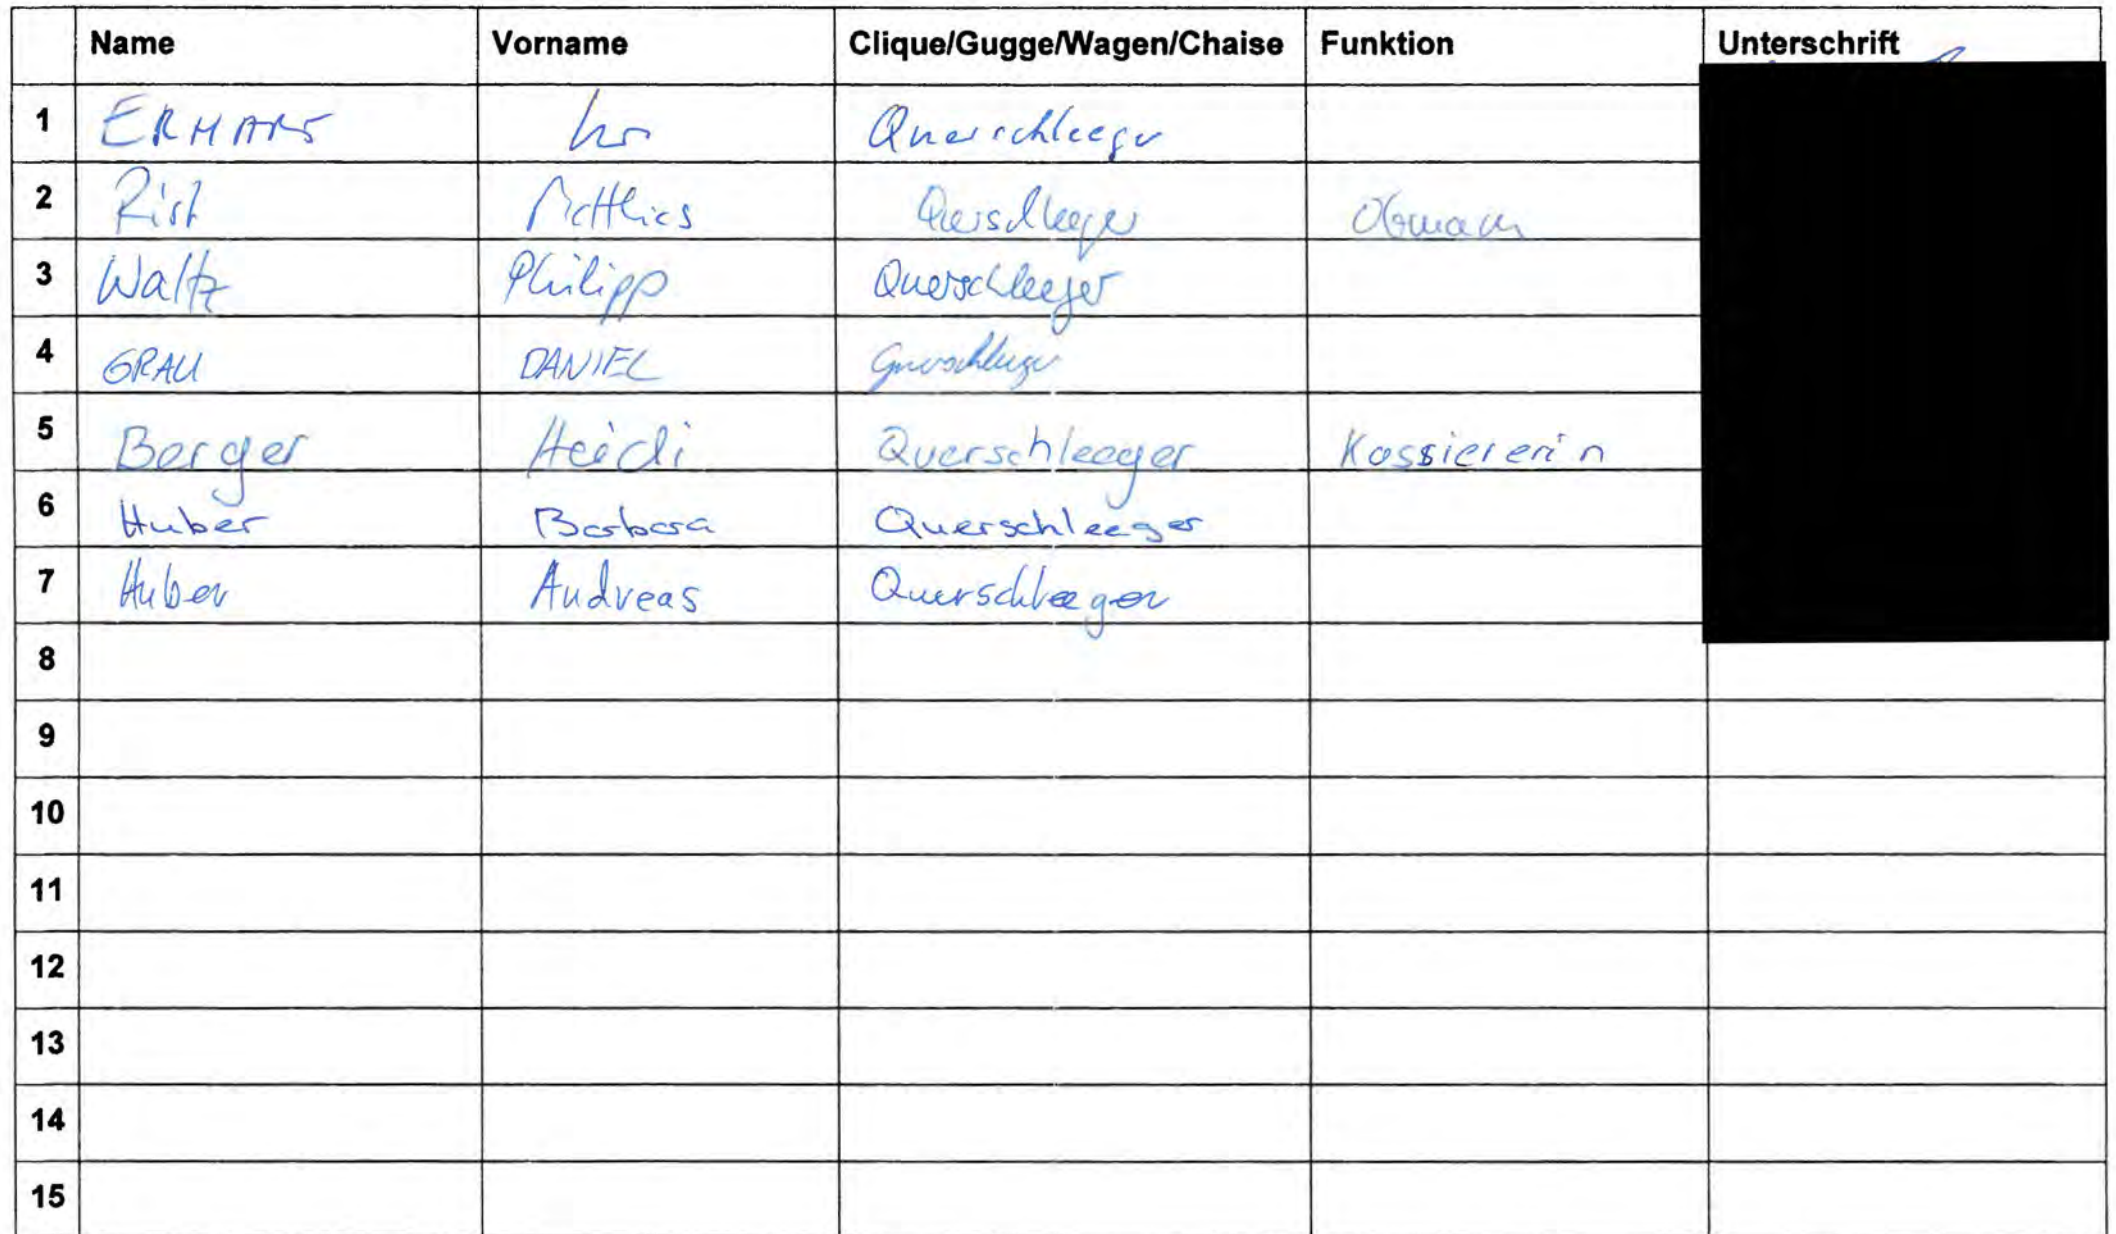 Name Vorname Clique/Gugge/Wagen/Chaise Funktion Unterschrift
1 Querschleeger
2 Rist Matthias Querschleeger Obmann
3 Waltz Philipp Querschleeger
4 GRAU DANIEL Querschleeger
5 Berger Heidi Querschleeger Kassiererin
6 Huber Barbara Querschleeger
7 Huber Andreas Querschleeger
8
9
10
11
12
13
14
15